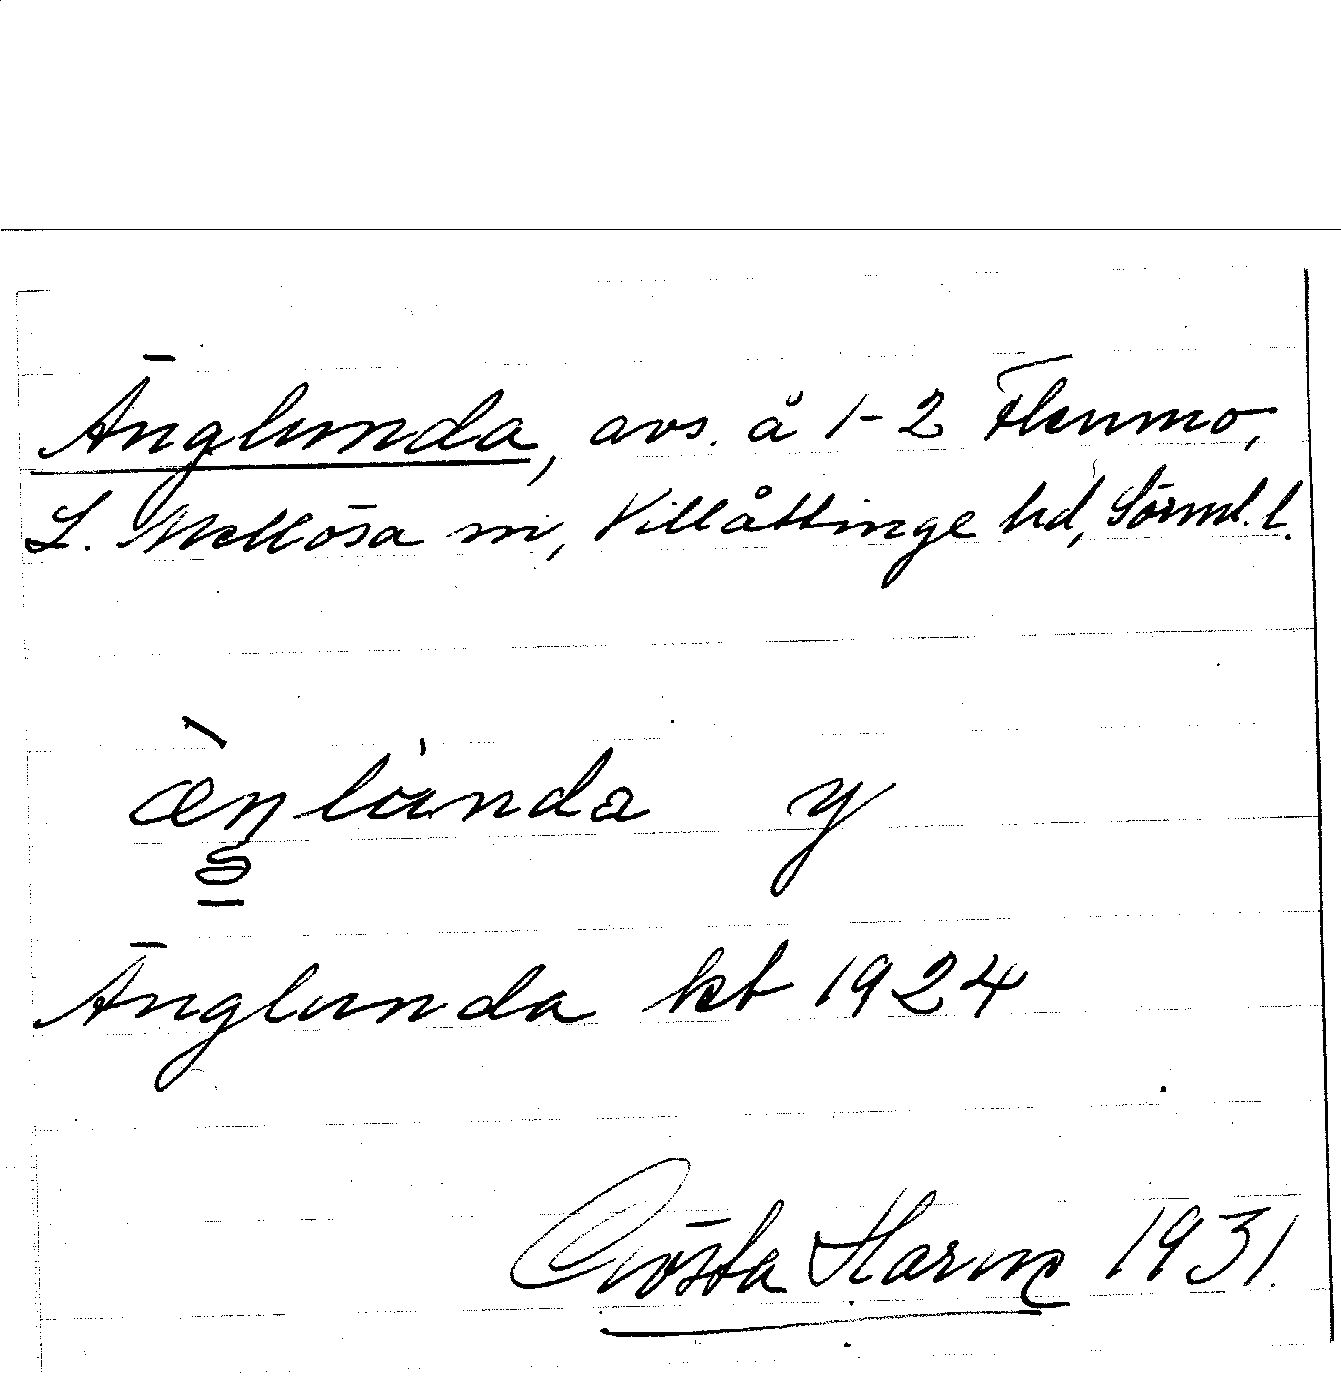 Änglunda, avs. å 1-2 Flenmo,
L. Mellösa sn, Villåttinge hd, Sörml. l.
y
Änglunda kb 1924
Gösta Harne 1931.